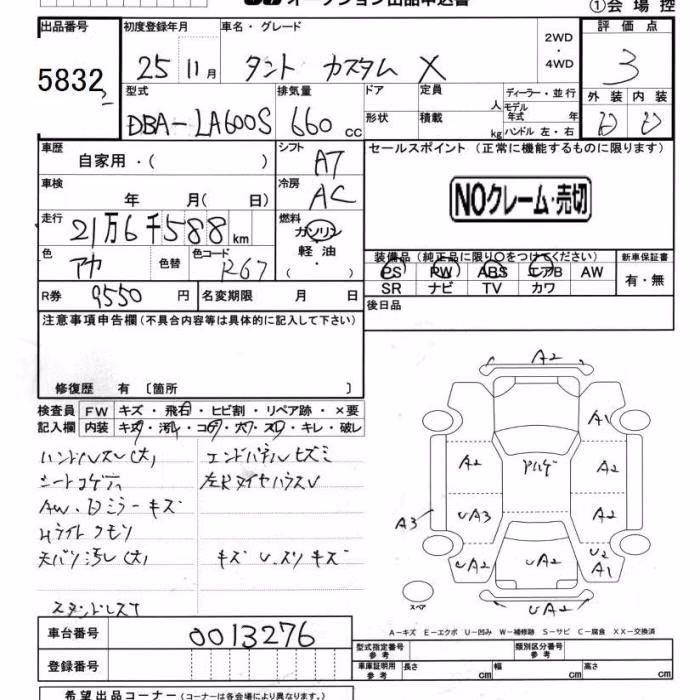 オークション出品申込書
①会場控
出品番号 初度登録年月 車名・グレード 2WD・4WD 評価点
5832 25 11月 タント カスタム X 3
型式 排気量 ドア 定員 人 ディーラー・並行 外装 内装
DBA-LA600S 660 cc 形状 積載 kg モデル年式 年 ハンドル 左・右 D D
車歴 自家用・( ) シフト A7 セールスポイント (正常に機能するものに限ります)
車検 年 月( 日) 冷房 AC
NOクレーム・売切
走行 21万6千588km 燃料 ガソリン
軽油・( )
色 アカ 色替 色コード R67
装備品 (純正品に限り○をつけてください) 新車保証書
PS PW ABS エアB AW 有・無
SR ナビ TV カワ
R券 9550円 名変期限 月 日 後日品
注意事項申告欄 (不具合内容等は具体的に記入して下さい)
修復歴 有 〔箇所 〕
検査員 FW キズ・飛石・ヒビ割・リペア跡・×要
記入欄 内装 キズ・汚れ・コゲ・穴・スレ・キレ・破レ
ハンドルスレ(大) エンドパネルヒズミ
シートコゲ、穴 左Rタイヤハウスレ
AW・Dミラーキズ
Hライトクモリ
天バリ汚レ(大) キズ U、スリキズ
A2
A1
A2 A2
UA3 A2
A3
UA2 UA2 U2 A1
UA2
スペア
A-キズ E-エクボ U-凹み W-補修跡 S-サビ C-腐食 XX-交換済
車台番号 0013276
型式指定番号 参考 類別区分番号 参考
登録番号
車庫証明用 参考 長さ cm 幅 cm 高さ cm
希望出品コーナー (コーナーは各会場により異なります。)